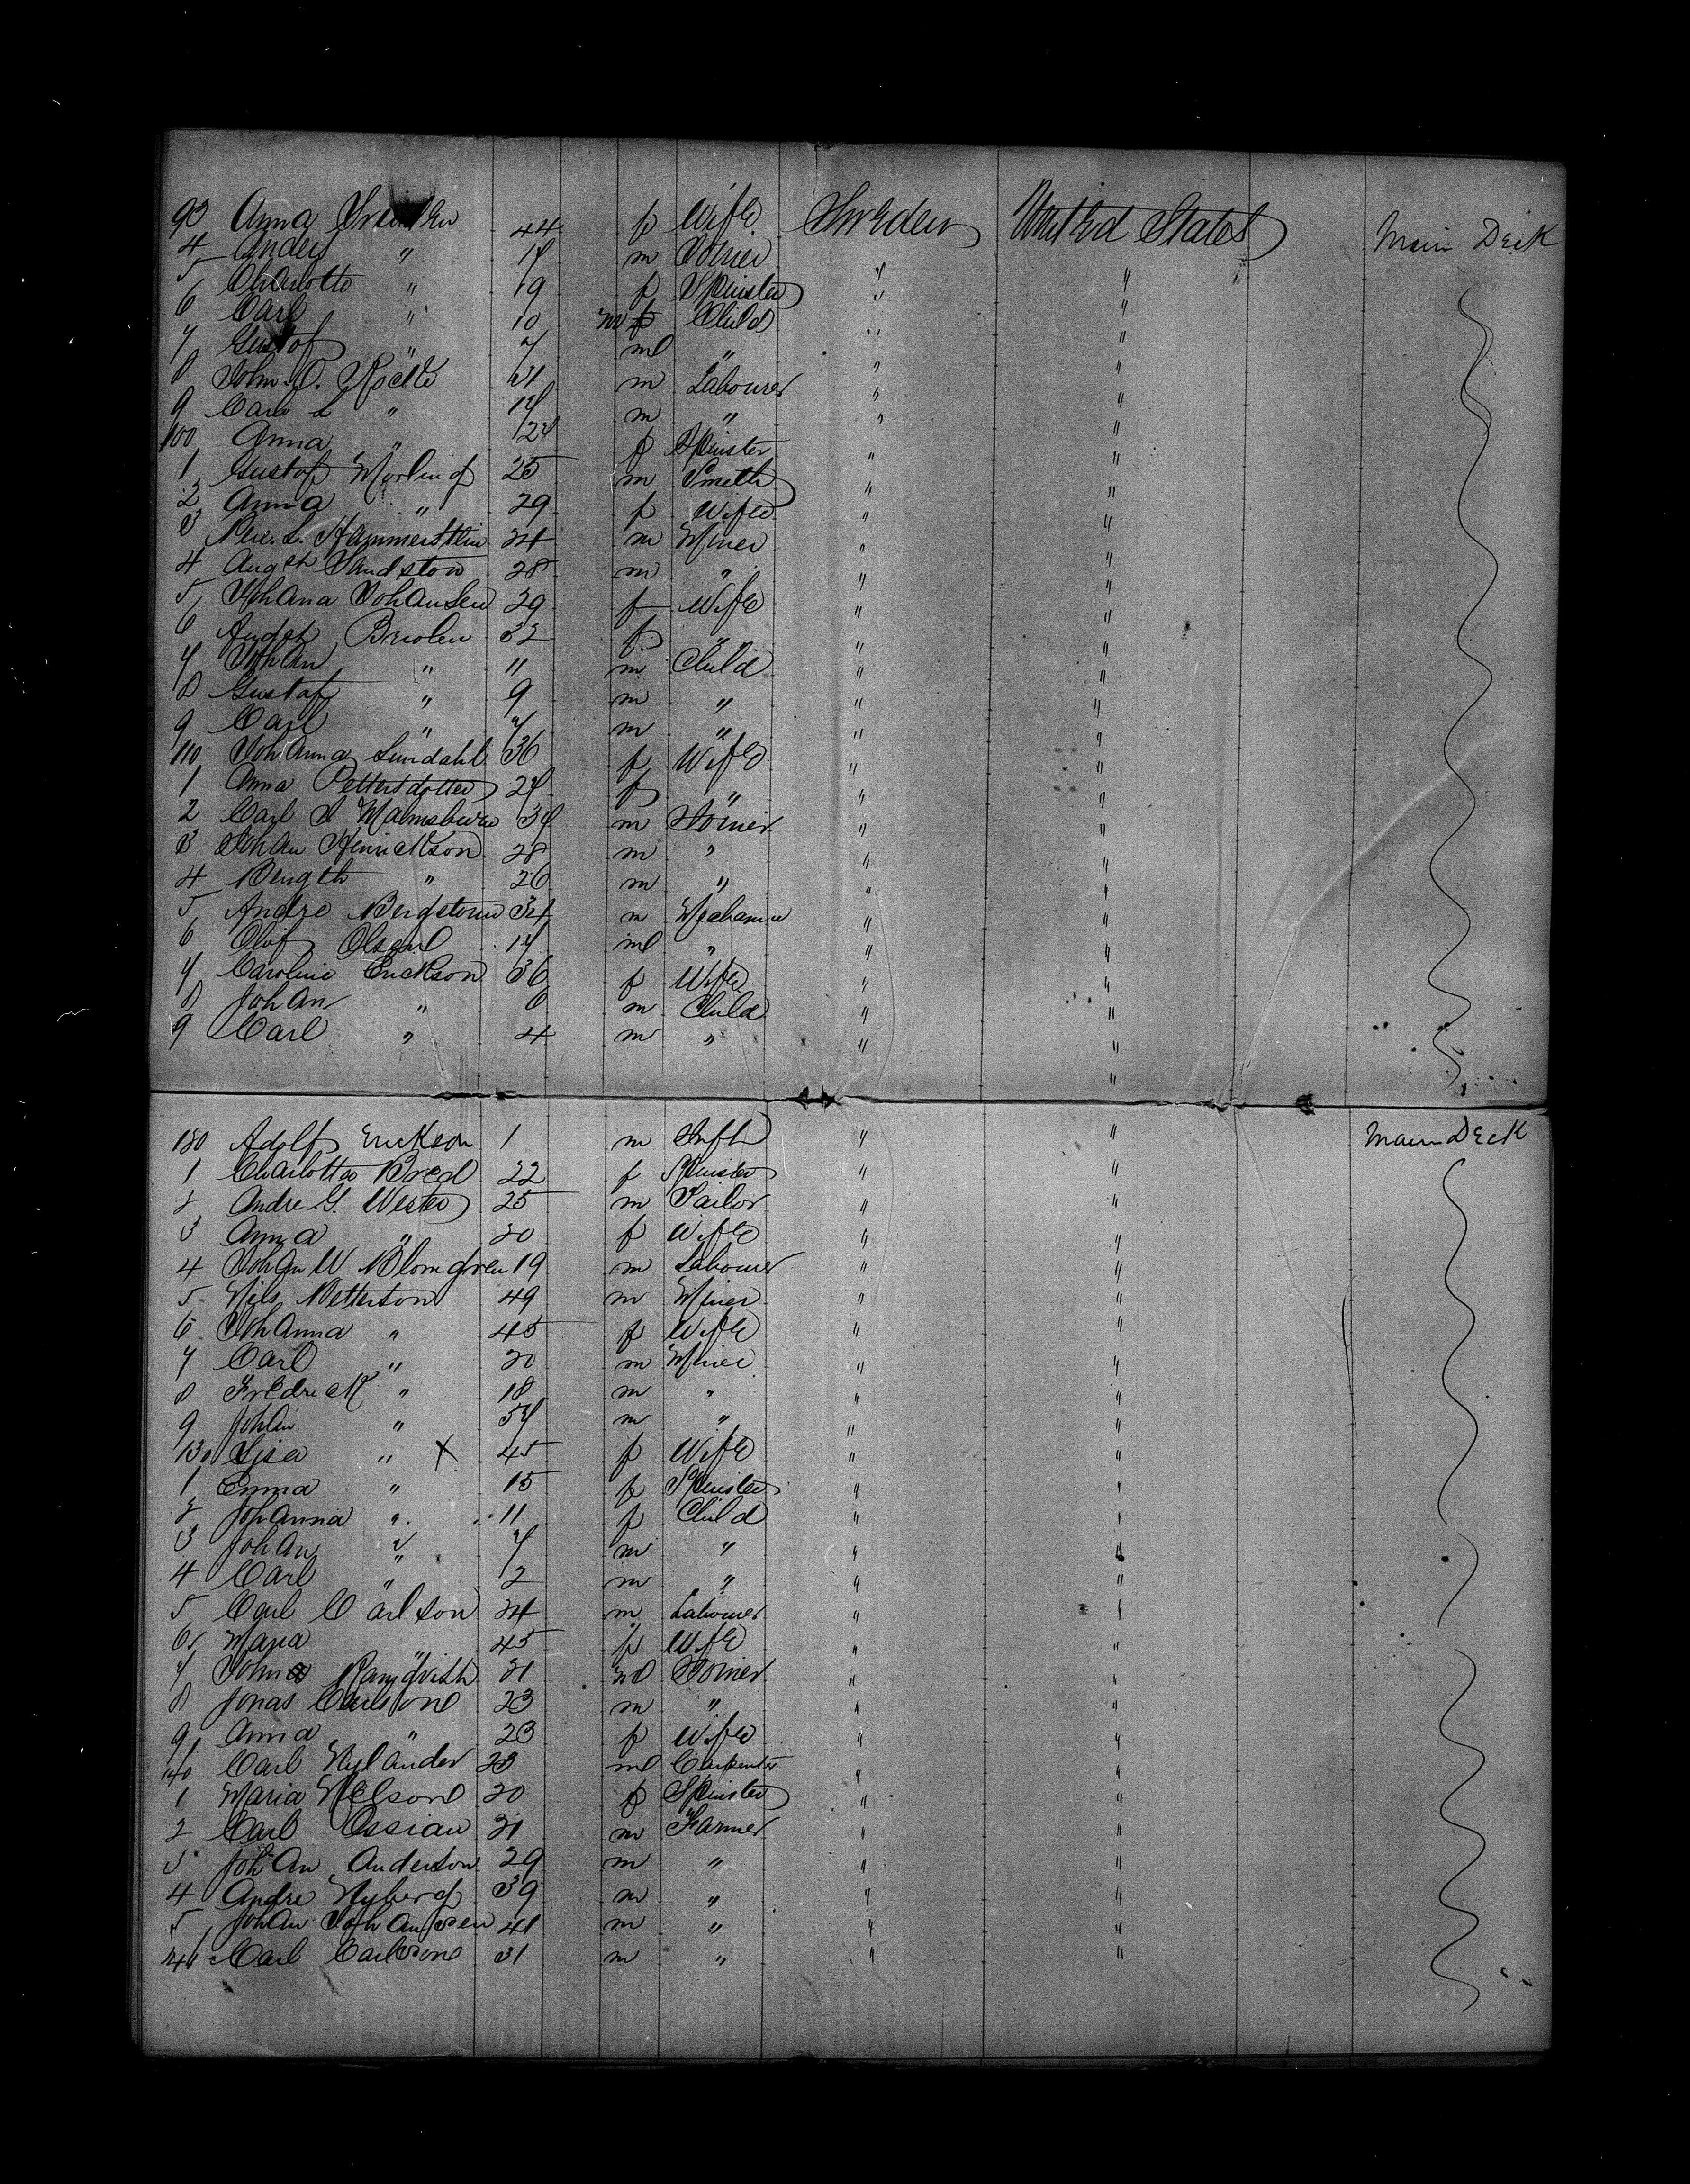 93 Anna 44 f Wife Sweden United States Main Deck
4 Anders " 17 m Joiner " "
5 Charlotte " 19 f Spinster " "
6 Carl " 10 m Child " "
7 Gustof " 7 m " " "
8 John O. 21 m Labourer " "
9 Carl L " 17 m " " "
100 Anna " 24 f Spinster " "
1 Gustof 25 m Smith " "
2 Anna " 29 f Wife " "
3 L. Hammerstein 24 m Miner " "
4 Augst Sandstow 28 m " " "
5 Johana Johansen 29 f Wife " "
6 32 f " " "
7 Johan " 11 m Child " "
8 Gustaf " 9 m " " "
9 Carl " 7 m " " "
110 Johanna Lundahl 36 f Wife " "
1 Anna Pettersdotter 24 f " " "
2 Carl 37 m Joiner " "
3 Johan Henrickson 28 m " " "
4 Bength " 26 m " " "
5 Andre 34 m Mechanic " "
6 Olof Olsen 17 m " " "
7 Caroline Erickson 36 f Wife " "
8 Johan " 6 m Child " "
9 Carl " 4 m " " "
120 Adolf Erickson 1 m Inft " " Main Deck
1 Charlotta 22 f Spinster " "
2 Andre G. Wester 25 m Sailor " "
3 Anna " 20 f Wife " "
4 Johan W Blomgren 19 m Labourer " "
5 Nils Petterson 49 m Miner " "
6 Johanna " 45 f Wife " "
7 Carl " 20 m Miner " "
8 Fredrick " 18 m " " "
9 Johan " 57 m " " "
130 Lisa " X 45 f Wife " "
1 Emma " 15 f Spinster " "
2 Johanna " 11 f Child " "
3 Johan " 7 m " " "
4 Carl " 2 m " " "
5 Carl Carlson 24 m Labourer " "
6 Maria " 45 f Wife " "
7 John Ramqvist 21 m Joiner " "
8 Jonas Carlson 23 m " " "
9 Anna " 23 f Wife " "
140 Carl Nylander 23 m Carpenter " "
1 Maria Nelson 20 f Spinster " "
2 Carl Ossian 31 m Farmer " "
3 Johan Anderson 29 m " " "
4 Andre Nyberg 39 m " " "
5 Johan Johansen 41 m " " "
146 Carl Carlson 31 m " " "